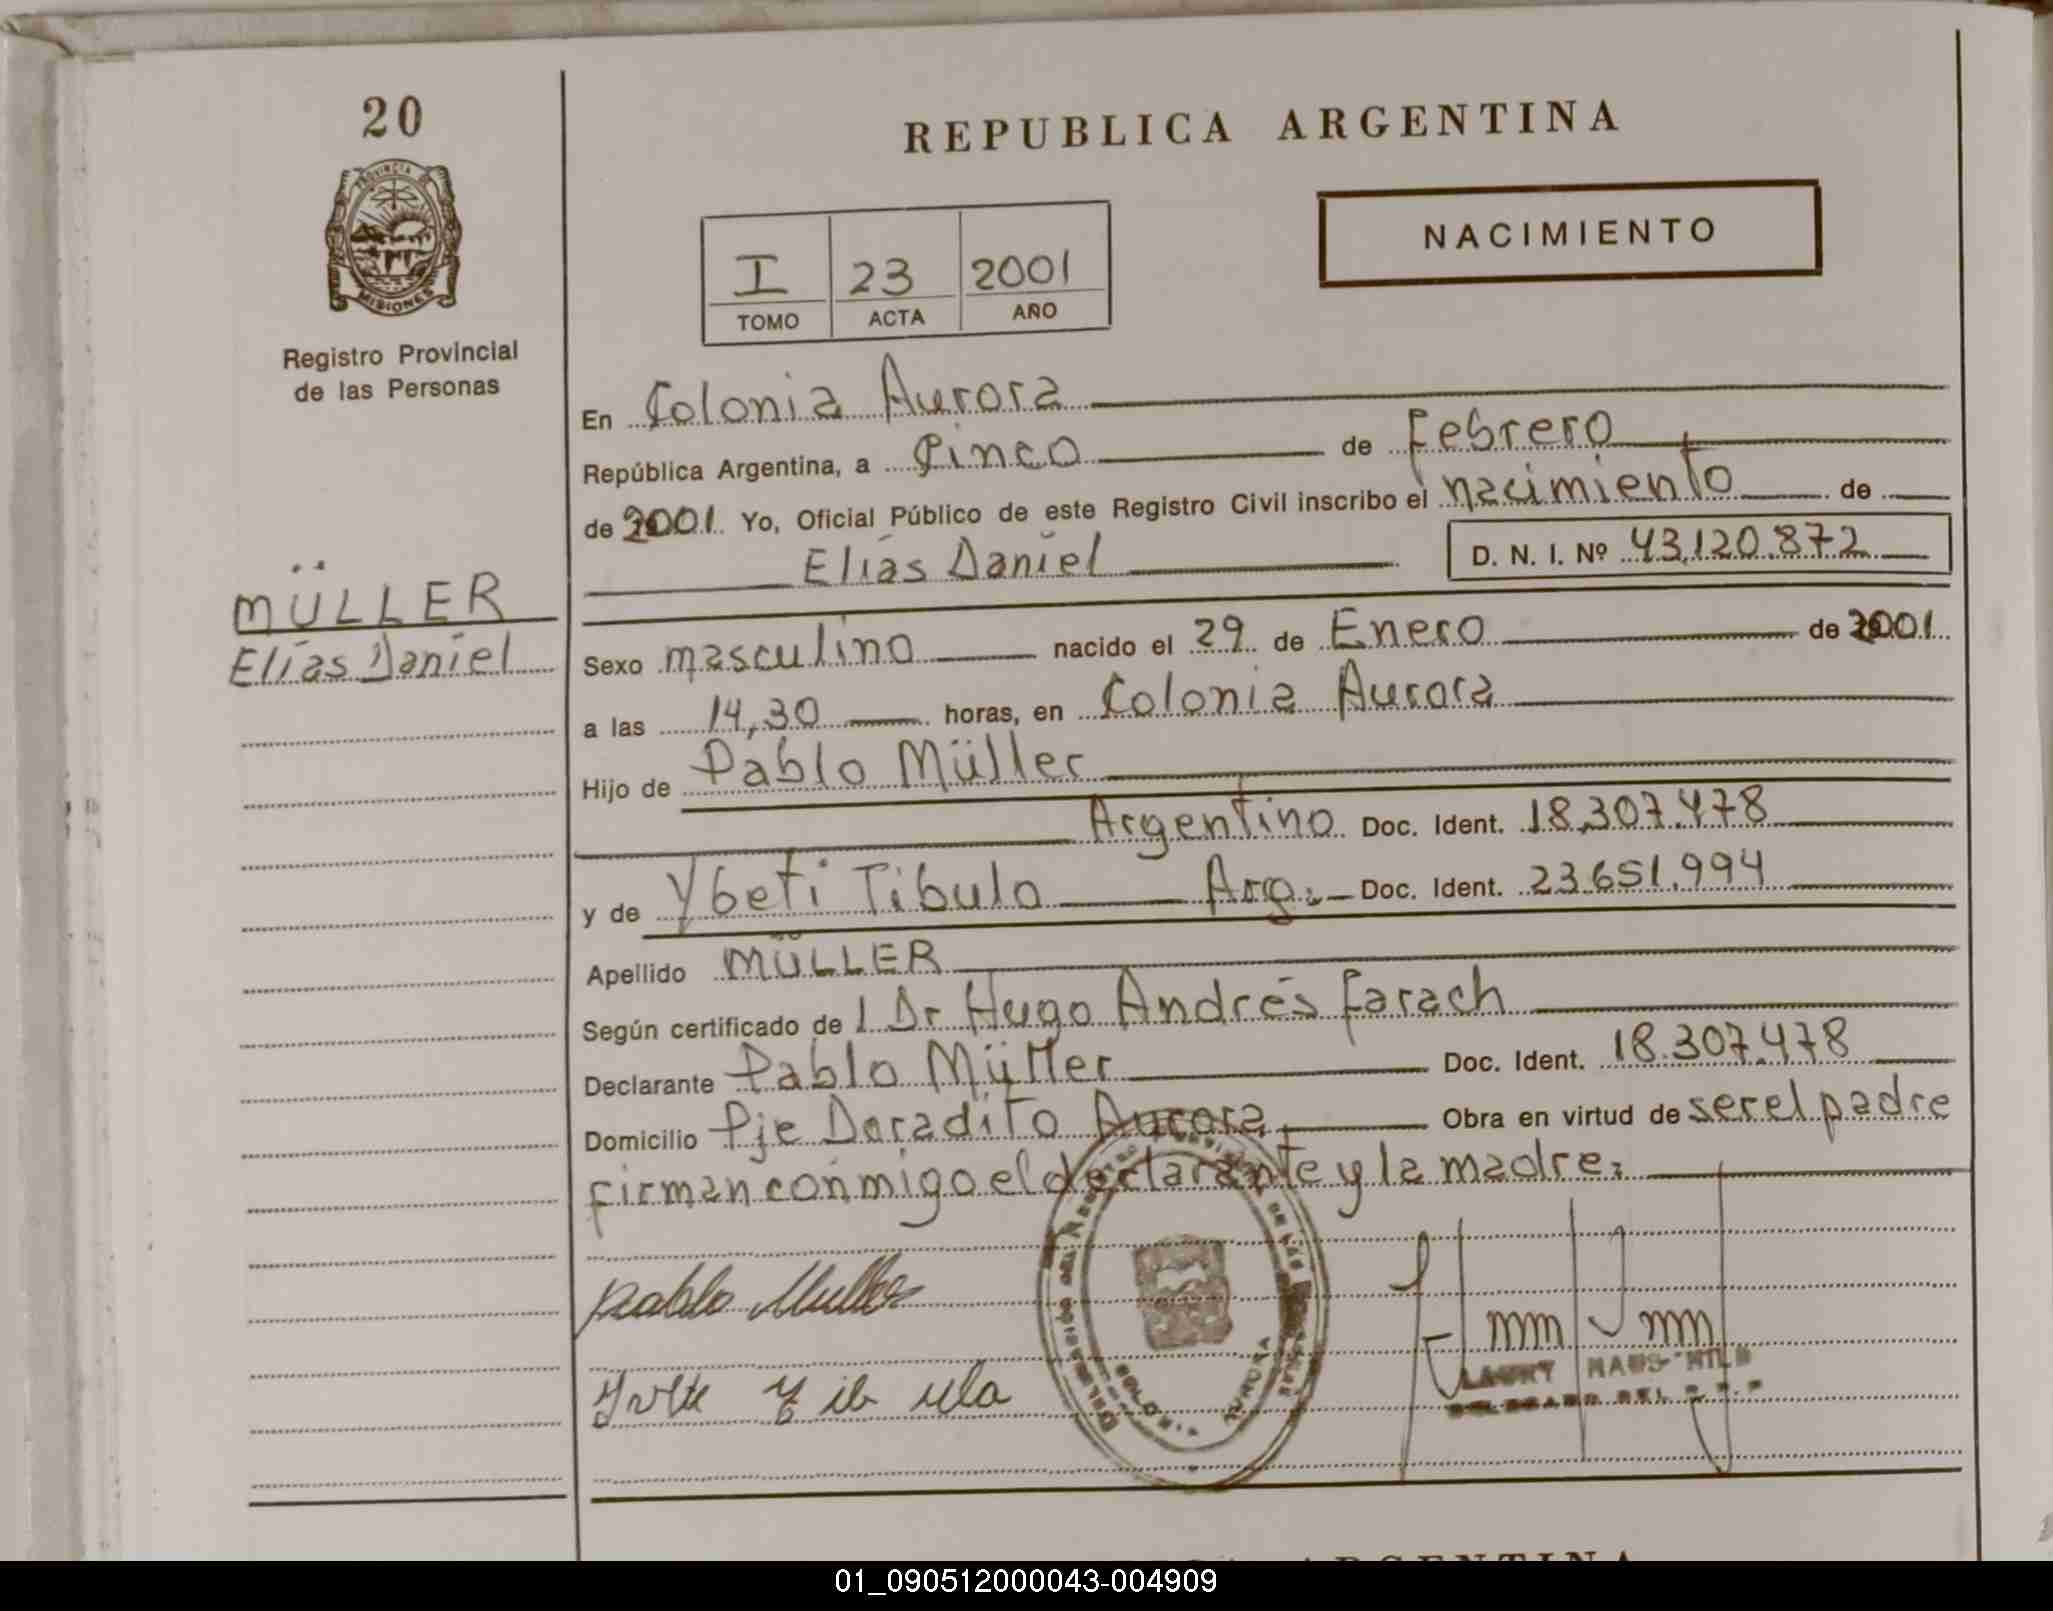 20
PROVINCIA DE
MISIONES
Registro Provincial
de las Personas
MÜLLER
Elías Daniel
REPUBLICA ARGENTINA
NACIMIENTO
I 23 2001
TOMO ACTA AÑO
En Colonia Aurora
República Argentina, a Cinco de Febrero
de 2001. Yo, Oficial Público de este Registro Civil inscribo el nacimiento de
Elías Daniel D. N. I. Nº 43.120.872
Sexo masculino nacido el 29 de Enero de 2001
a las 14,30 horas, en Colonia Aurora
Hijo de Pablo Müller
Argentino Doc. Ident. 18.307.478
y de Ybeti Tibulo Arg. Doc. Ident. 23.651.994
Apellido MÜLLER
Según certificado de l Dr Hugo Andrés Farach
Declarante Pablo Müller Doc. Ident. 18.307.478
Domicilio Pje Doradito Aurora Obra en virtud de ser el padre
firman conmigo el declarante y la madre.
Pablo Muller
AURORA
01_090512000043-004909